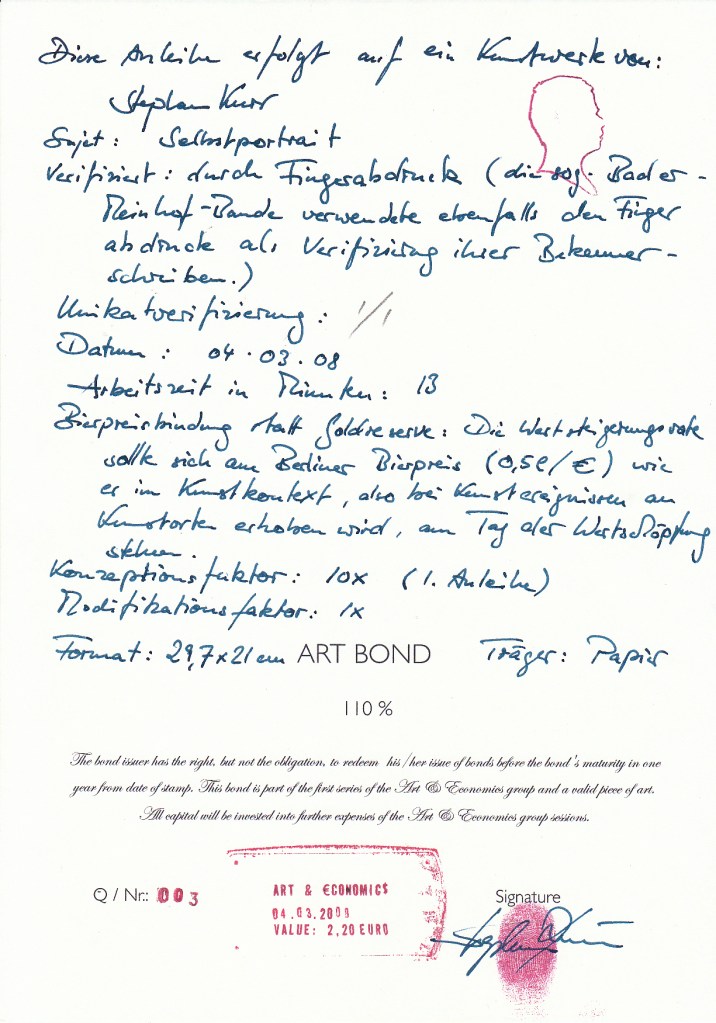 Diese Anleihe erfolgt auf ein Kunstwerk von:
Stephan Kurr
Sujet: Selbstportrait
Verifiziert: durch Fingerabdruck (die sog. Bader-
Meinhof-Bande verwendete ebenfalls den Finger
abdruck als Verifizierung ihrer Bekenner-
schreiben.)
Unikatverifizierung: 1/1
Datum: 04.03.08
Arbeitszeit in Minuten: 13
Bierpreisbindung statt Goldreserve: Die Wertsteigerungsrate
sollte sich am Berliner Bierpreis (0,5l/€) wie
er im Kunstkontext, also bei Kunstereignissen an
Kunstorten erhoben wird, am Tag der Wertschöpfung
stehen.
Konzeptionsfaktor: 10x (1. Anleihe)
Modifikationsfaktor: 1x
Format: 29,7x21cm ART BOND Träger: Papier
110 %
The bond issuer has the right, but not the obligation, to redeem his/her issue of bonds before the bond's maturity in one
year from date of stamp. This bond is part of the first series of the Art & Economics group and a valid piece of art.
All capital will be invested into further expenses of the Art & Economics group sessions.
Q / Nr.: 003
ART & €CONOMIC$
04.03.2008
VALUE: 2,20 EURO
Signature
Stephan Kurr